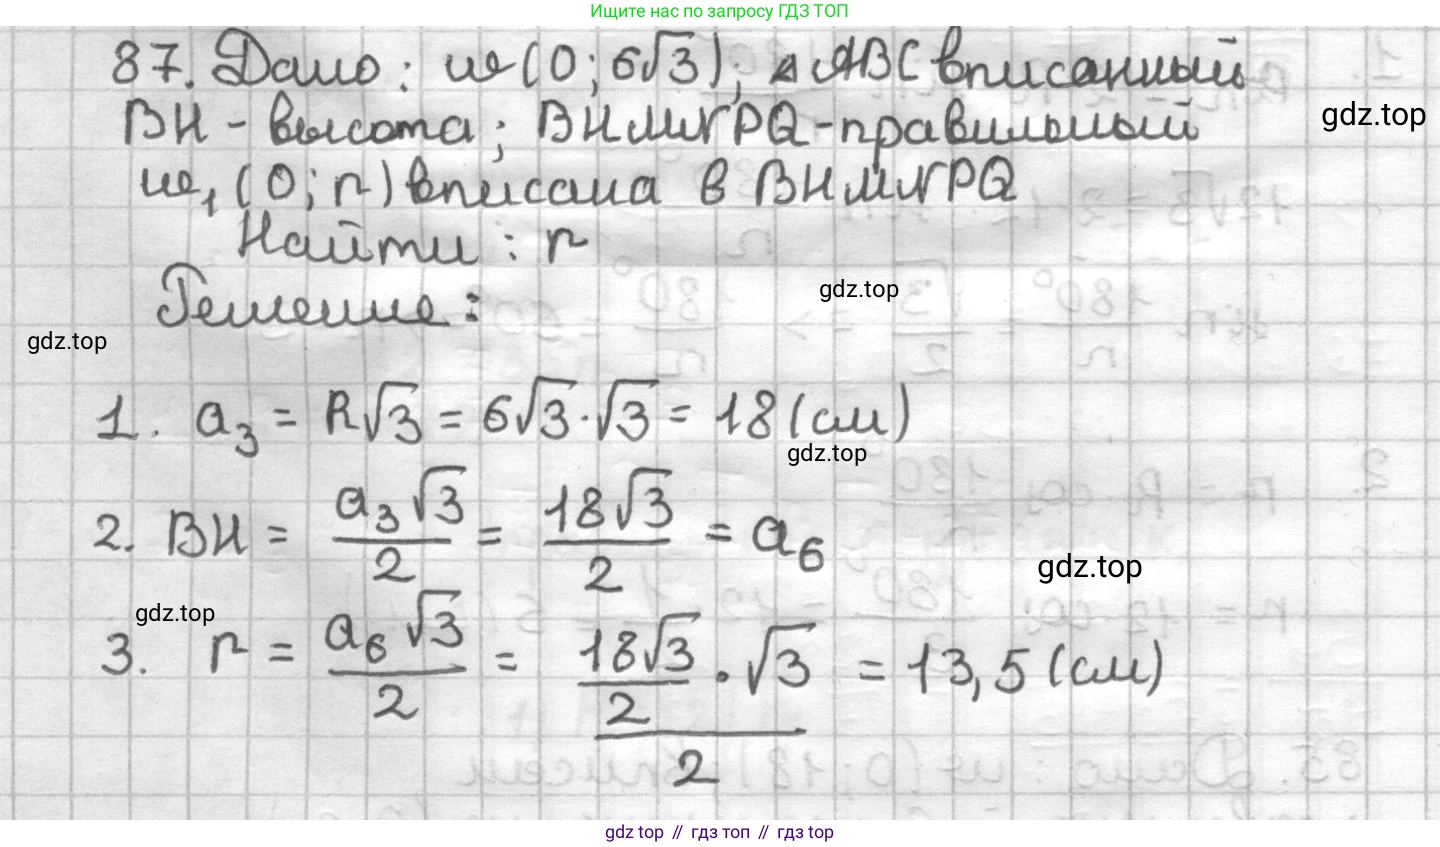 Ищите нас по запросу ГДЗ ТОП
87. Дано: ω(O; 6√3); △ABC вписанный
gdz.top
BH - высота; BHMNPQ - правильный
ω₁(O; r) вписана в BHMNPQ
Найти: r
gdz.top
Решение:
gdz.top
1. a₃ = R√3 = 6√3 · √3 = 18 (см)
gdz.top
2. BH = a₃√3/2 = 18√3/2 = a₆
gdz.top
gdz.top
3. r = a₆√3/2 = (18√3/2 · √3)/2 = 13,5 (см)
gdz top // гдз топ // gdz top